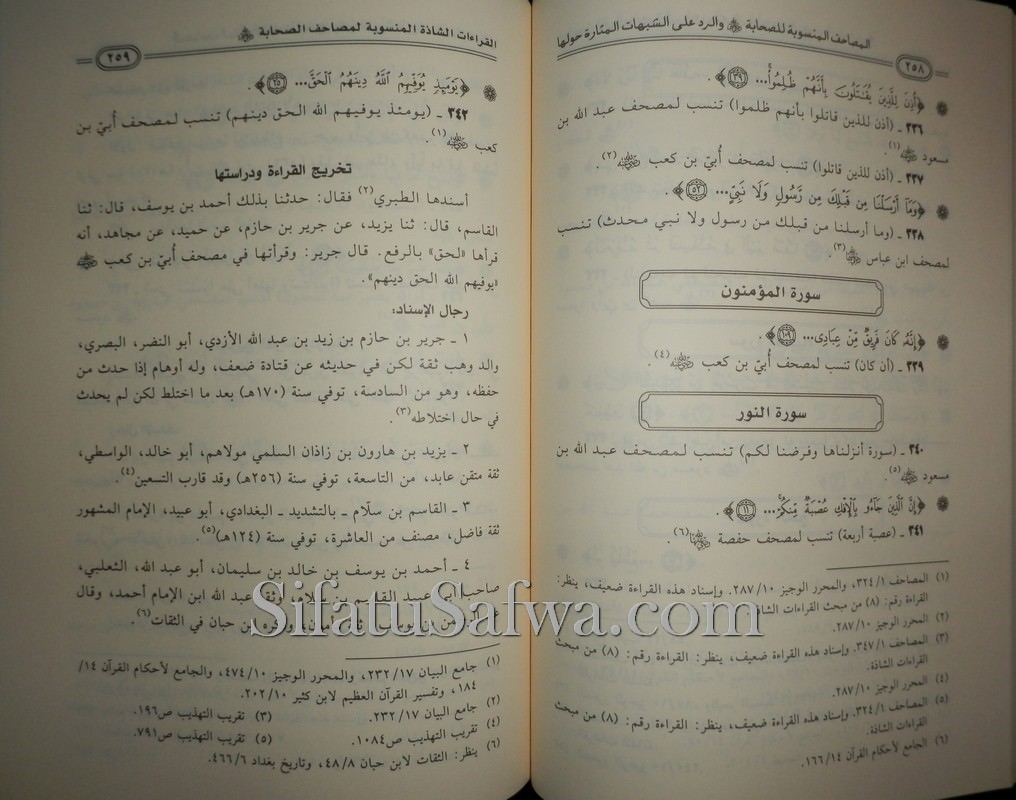 المصاحف المنسوبة للصحابة والرد على الشبهات المثارة حولها
٢٥٨
﴿أُذِنَ لِلَّذِينَ يُقَٰتَلُونَ بِأَنَّهُمْ ظُلِمُواْ... ٣٩﴾.
٣٣٦ ـ (أذن للذين قاتلوا بأنهم ظلموا) تنسب لمصحف عبد الله بن
مسعود (١).
٣٣٧ ـ (أذن للذين قاتلوا) تنسب لمصحف أُبيّ بن كعب (٢).
﴿وَمَآ أَرْسَلْنَا مِن قَبْلِكَ مِن رَّسُولٍ وَلَا نَبِيٍّ... ٥٢﴾.
٣٣٨ ـ (وما أرسلنا من قبلك من رسول ولا نبي محدث) تنسب
لمصحف ابن عباس (٣).
سورة المؤمنون
﴿إِنَّهُۥ كَانَ فَرِيقٌ مِّنْ عِبَادِى... ١٠٩﴾.
٣٣٩ ـ (أن كان) تنسب لمصحف أُبيّ بن كعب (٤).
سورة النور
٣٤٠ ـ (سورة أنزلناها وفرضنا لكم) تنسب لمصحف عبد الله بن
مسعود (٥).
﴿إِنَّ ٱلَّذِينَ جَآءُو بِٱلْإِفْكِ عُصْبَةٌ مِّنكُمْ... ١١﴾.
٣٤١ ـ (عصبة أربعة) تنسب لمصحف حفصة (٦).
(١) المصاحف ٣٢٤/١، والمحرر الوجيز ٢٨٧/١٠. وإسناد هذه القراءة ضعيف، ينظر:
القراءة رقم: (٨) من مبحث القراءات الشاذة.
(٢) المحرر الوجيز ٢٨٧/١٠.
(٣) المصاحف ٣٤٧/١. وإسناد هذه القراءة ضعيف، ينظر: القراءة رقم: (٨) من مبحث
القراءات الشاذة.
(٤) المحرر الوجيز ٢٨٧/١٠.
(٥) المصاحف ٣٢٤/١. وإسناد هذه القراءة ضعيف، ينظر: القراءة رقم: (٨) من مبحث
القراءات الشاذة.
(٦) الجامع لأحكام القرآن ١٦٦/١٤.
القراءات الشاذة المنسوبة لمصاحف الصحابة
٢٥٩
﴿يَوْمَئِذٍ يُوَفِّيهِمُ ٱللَّهُ دِينَهُمُ ٱلْحَقَّ... ٢٥﴾.
٣٤٢ ـ (يومئذ يوفيهم الله الحق دينهم) تنسب لمصحف أُبيّ بن
كعب (١).
تخريج القراءة ودراستها
أسندها الطبري(٢) فقال: حدثنا بذلك أحمد بن يوسف، قال: ثنا
القاسم، قال: ثنا يزيد، عن جرير بن حازم، عن حميد، عن مجاهد، أنه
قرأها «لحق» بالرفع. قال جرير: وقرأتها في مصحف أُبيّ بن كعب
«يوفيهم الله الحق دينهم».
رجال الإسناد:
١ ـ جرير بن حازم بن زيد بن عبد الله الأزدي، أبو النضر، البصري،
والد وهب ثقة لكن في حديثه عن قتادة ضعف، وله أوهام إذا حدث من
حفظه، وهو من السادسة، توفي سنة (١٧٠هـ) بعد ما اختلط لكن لم يحدث
في حال اختلاطه(٣).
٢ ـ يزيد بن هارون بن زاذان السلمي مولاهم، أبو خالد، الواسطي،
ثقة متقن عابد، من التاسعة، توفي سنة (٢٥٦هـ) وقد قارب التسعين(٤).
٣ ـ القاسم بن سلّام ـ بالتشديد ـ البغدادي، أبو عبيد، الإمام المشهور
ثقة فاضل، مصنف من العاشرة، توفي سنة (١٢٤هـ)(٥).
٤ ـ أحمد بن يوسف بن خالد بن سليمان، أبو عبد الله، الثعلبي،
صاحب أبي عبيد القاسم بن سلام، وثقه عبد الله ابن الإمام أحمد، وقال
بن يوسف: ثقة أمون، وذكره ابن حبان في الثقات(٦).
(١) جامع البيان ٢٣٢/١٧، والمحرر الوجيز ٤٧٤/١٠، والجامع لأحكام القرآن ١٤/
١٨٤، وتفسير القرآن العظيم لابن كثير ٢٠٢/١٠.
(٢) جامع البيان ٢٣٢/١٧. (٣) تقريب التهذيب ص١٩٦.
(٤) تقريب التهذيب ص١٠٨٤. (٥) تقريب التهذيب ص٧٩١.
(٦) ينظر: الثقات لابن حبان ٤٨/٨، وتاريخ بغداد ٤٦٦/٦.
SifatuSafwa.com